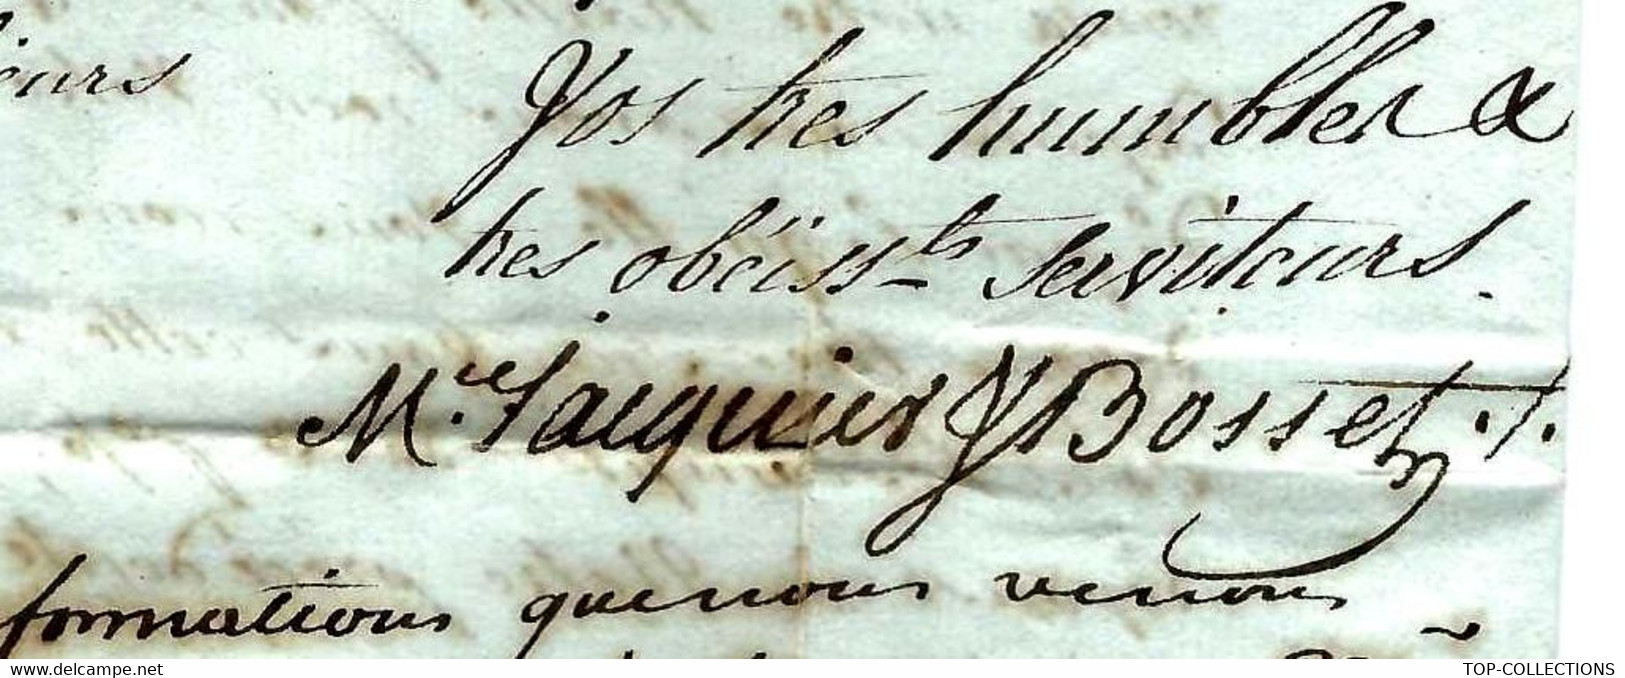 eurs
Vos tres humbles &
tres obéiss.ts Serviteurs.
M.ce Jacquier & J Bosset ./.
formations que nous venons
www.delcampe.net
TOP-COLLECTIONS